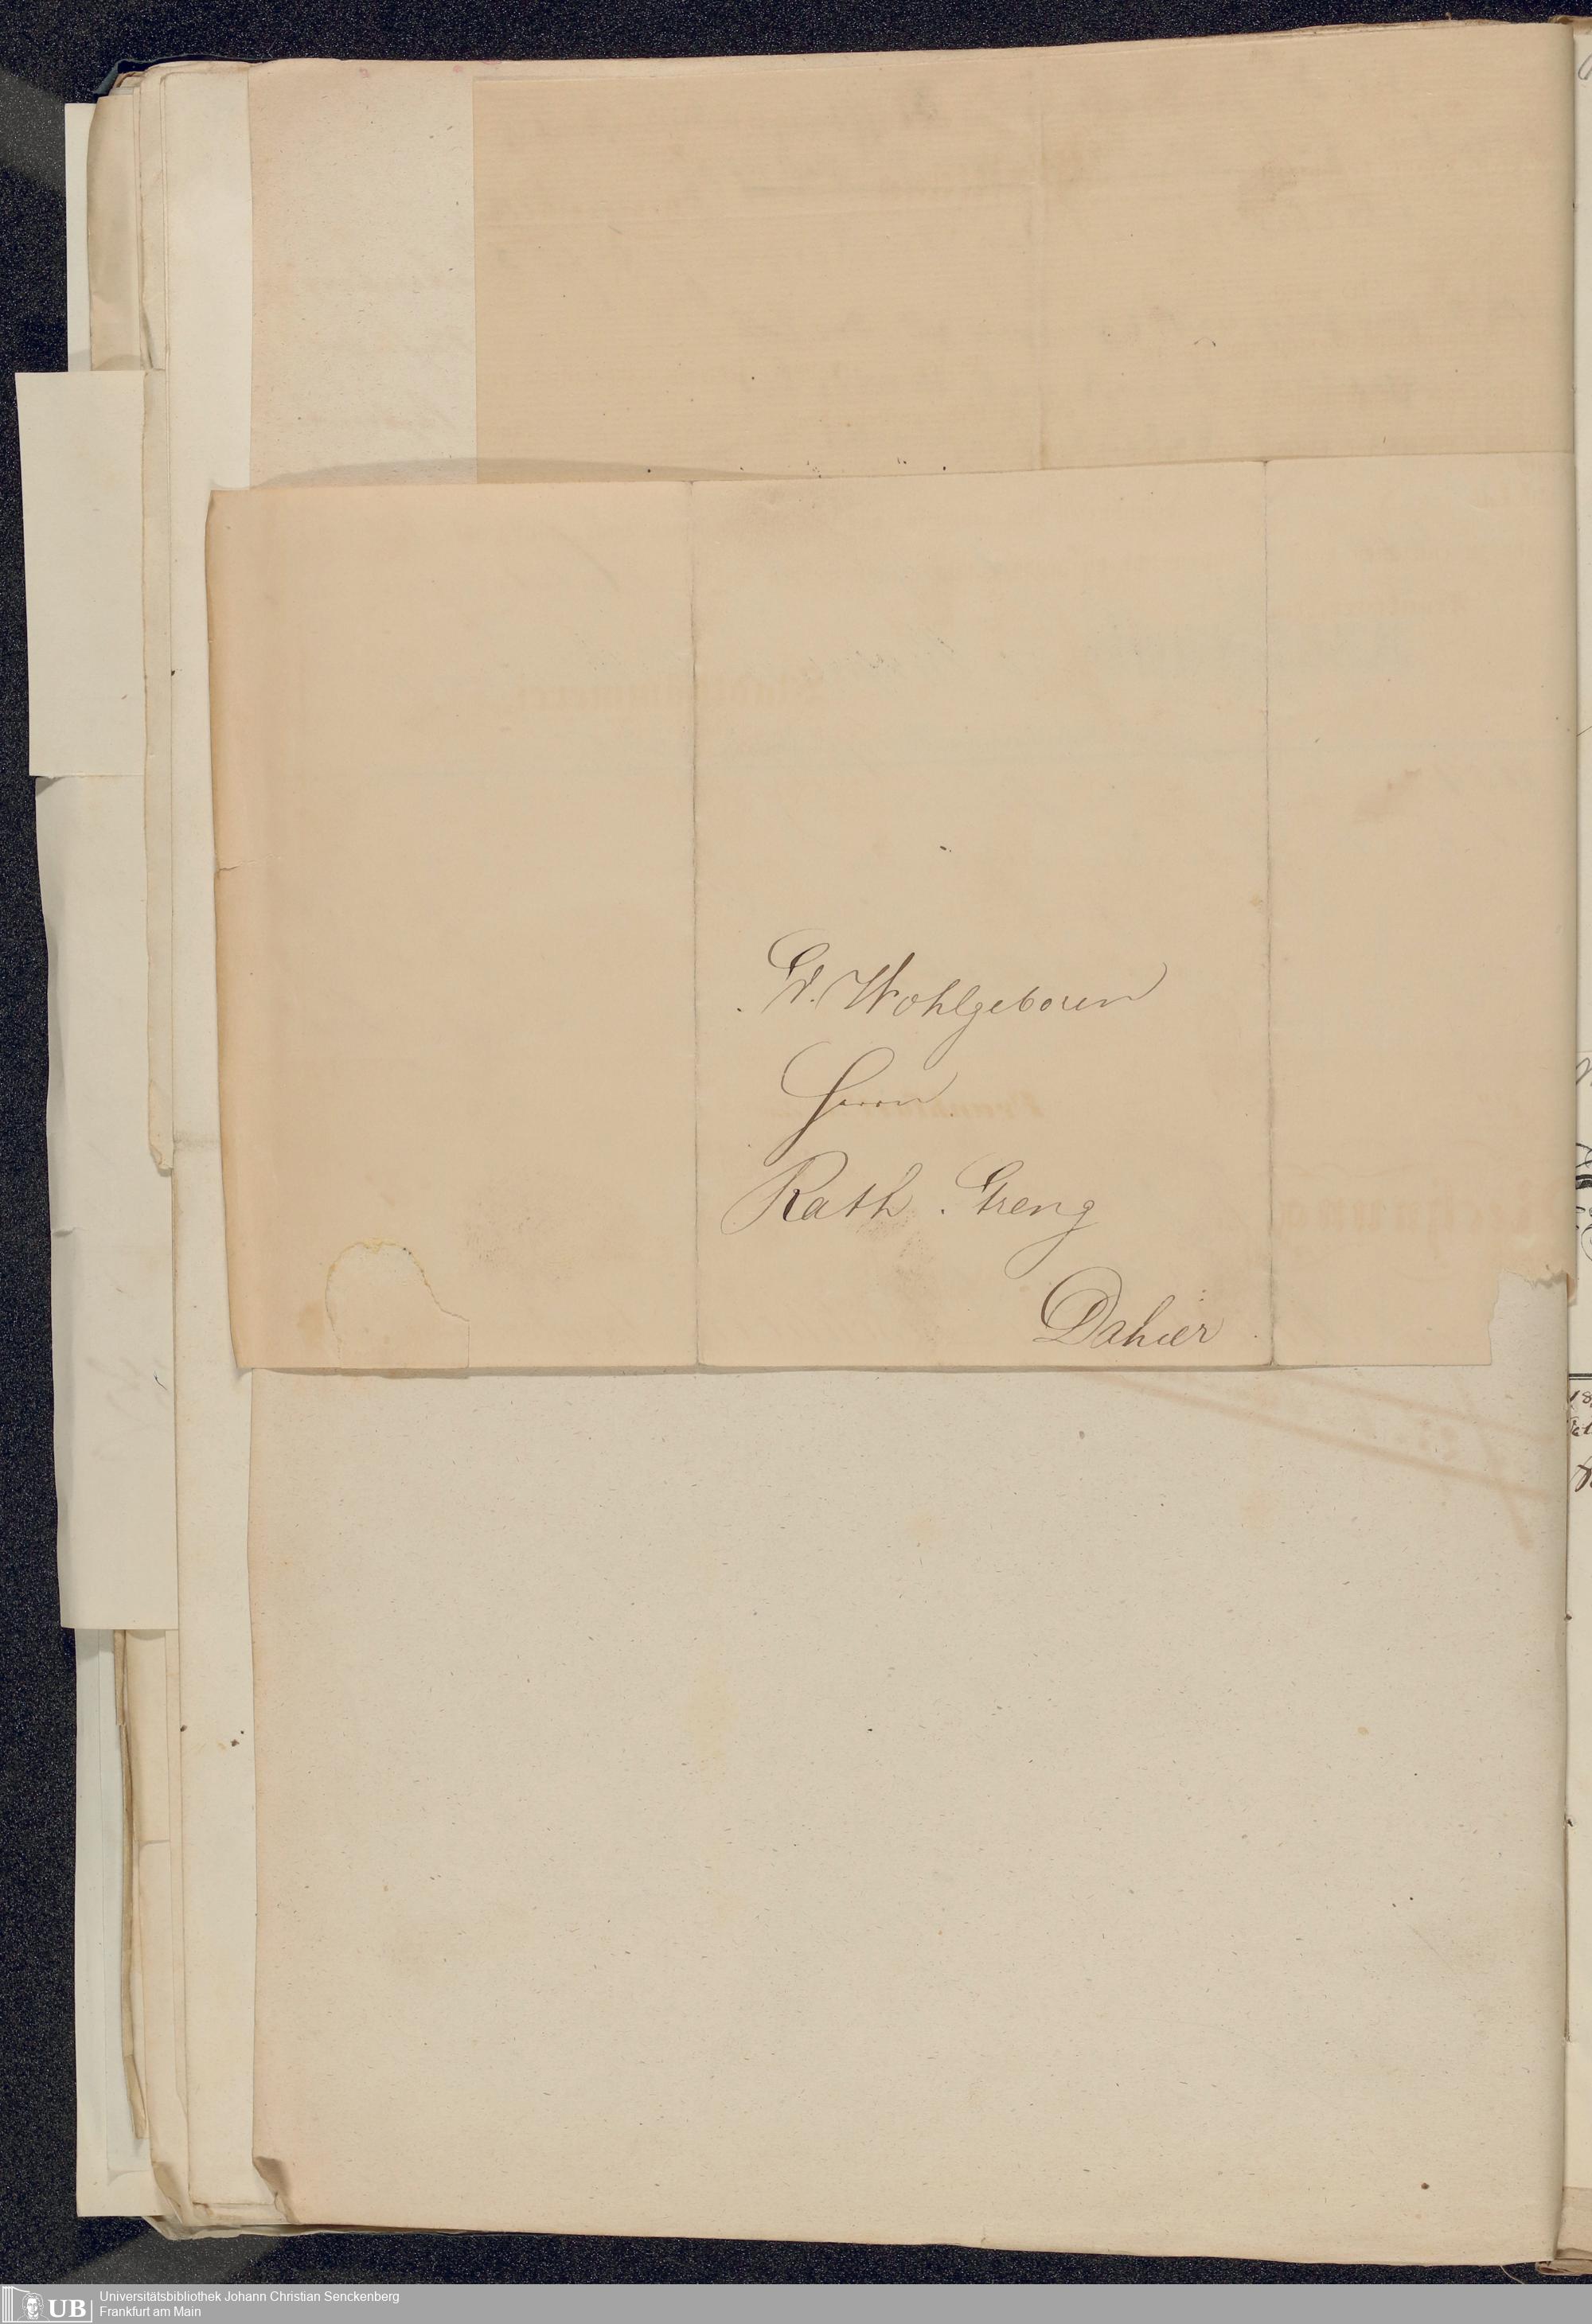 Er. Wohlgeboren
Herrn
Rath. Greng
Dahier
Universitätsbibliothek Johann Christian Senckenberg
Frankfurt am Main
UB